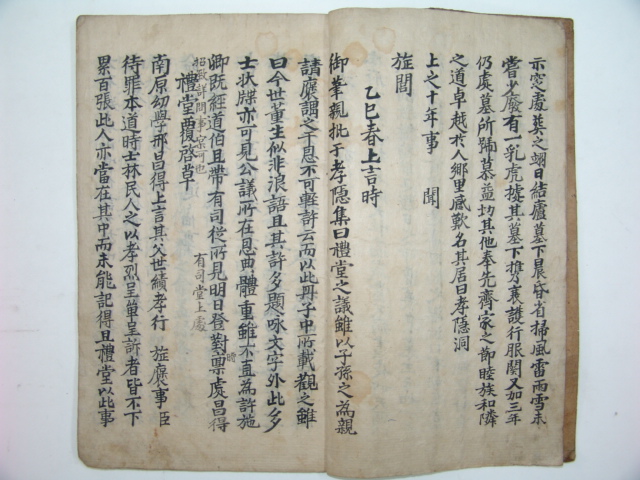 示窆處葬之翊日結廬墓下晨昏省掃風雷雨雪未
嘗少廢有一乳虎摟其墓下攙襄護行服闋又加三年
仍虞墓所踊慕益切其他奉先齊家之節睦族和隣
之道卓越於人鄉里感歎名其居曰孝隱洞
上之十年事聞
旌閭
乙巳春上言時
御筆親批于孝隱集曰禮堂之議雖以子孫之爲親
請褒謂之干恩不可輕許云而以此册子中所載觀之雖
曰今世董生似非浪語且其許多題咏文字外此多
士狀牒亦可見公議所在恩典體重雖不直爲許施
卿旣經道伯且帶有司從所見明日登對時禀處昌得
招致詳問事案可也
有司堂上處
禮堂覆啓草
南原幼學邢昌得上言其父世績孝行旌褒事臣
待罪本道時士林民人之以孝烈呈單呈許者皆不下
累百張此人亦當在其中而未能記得且禮堂以此事